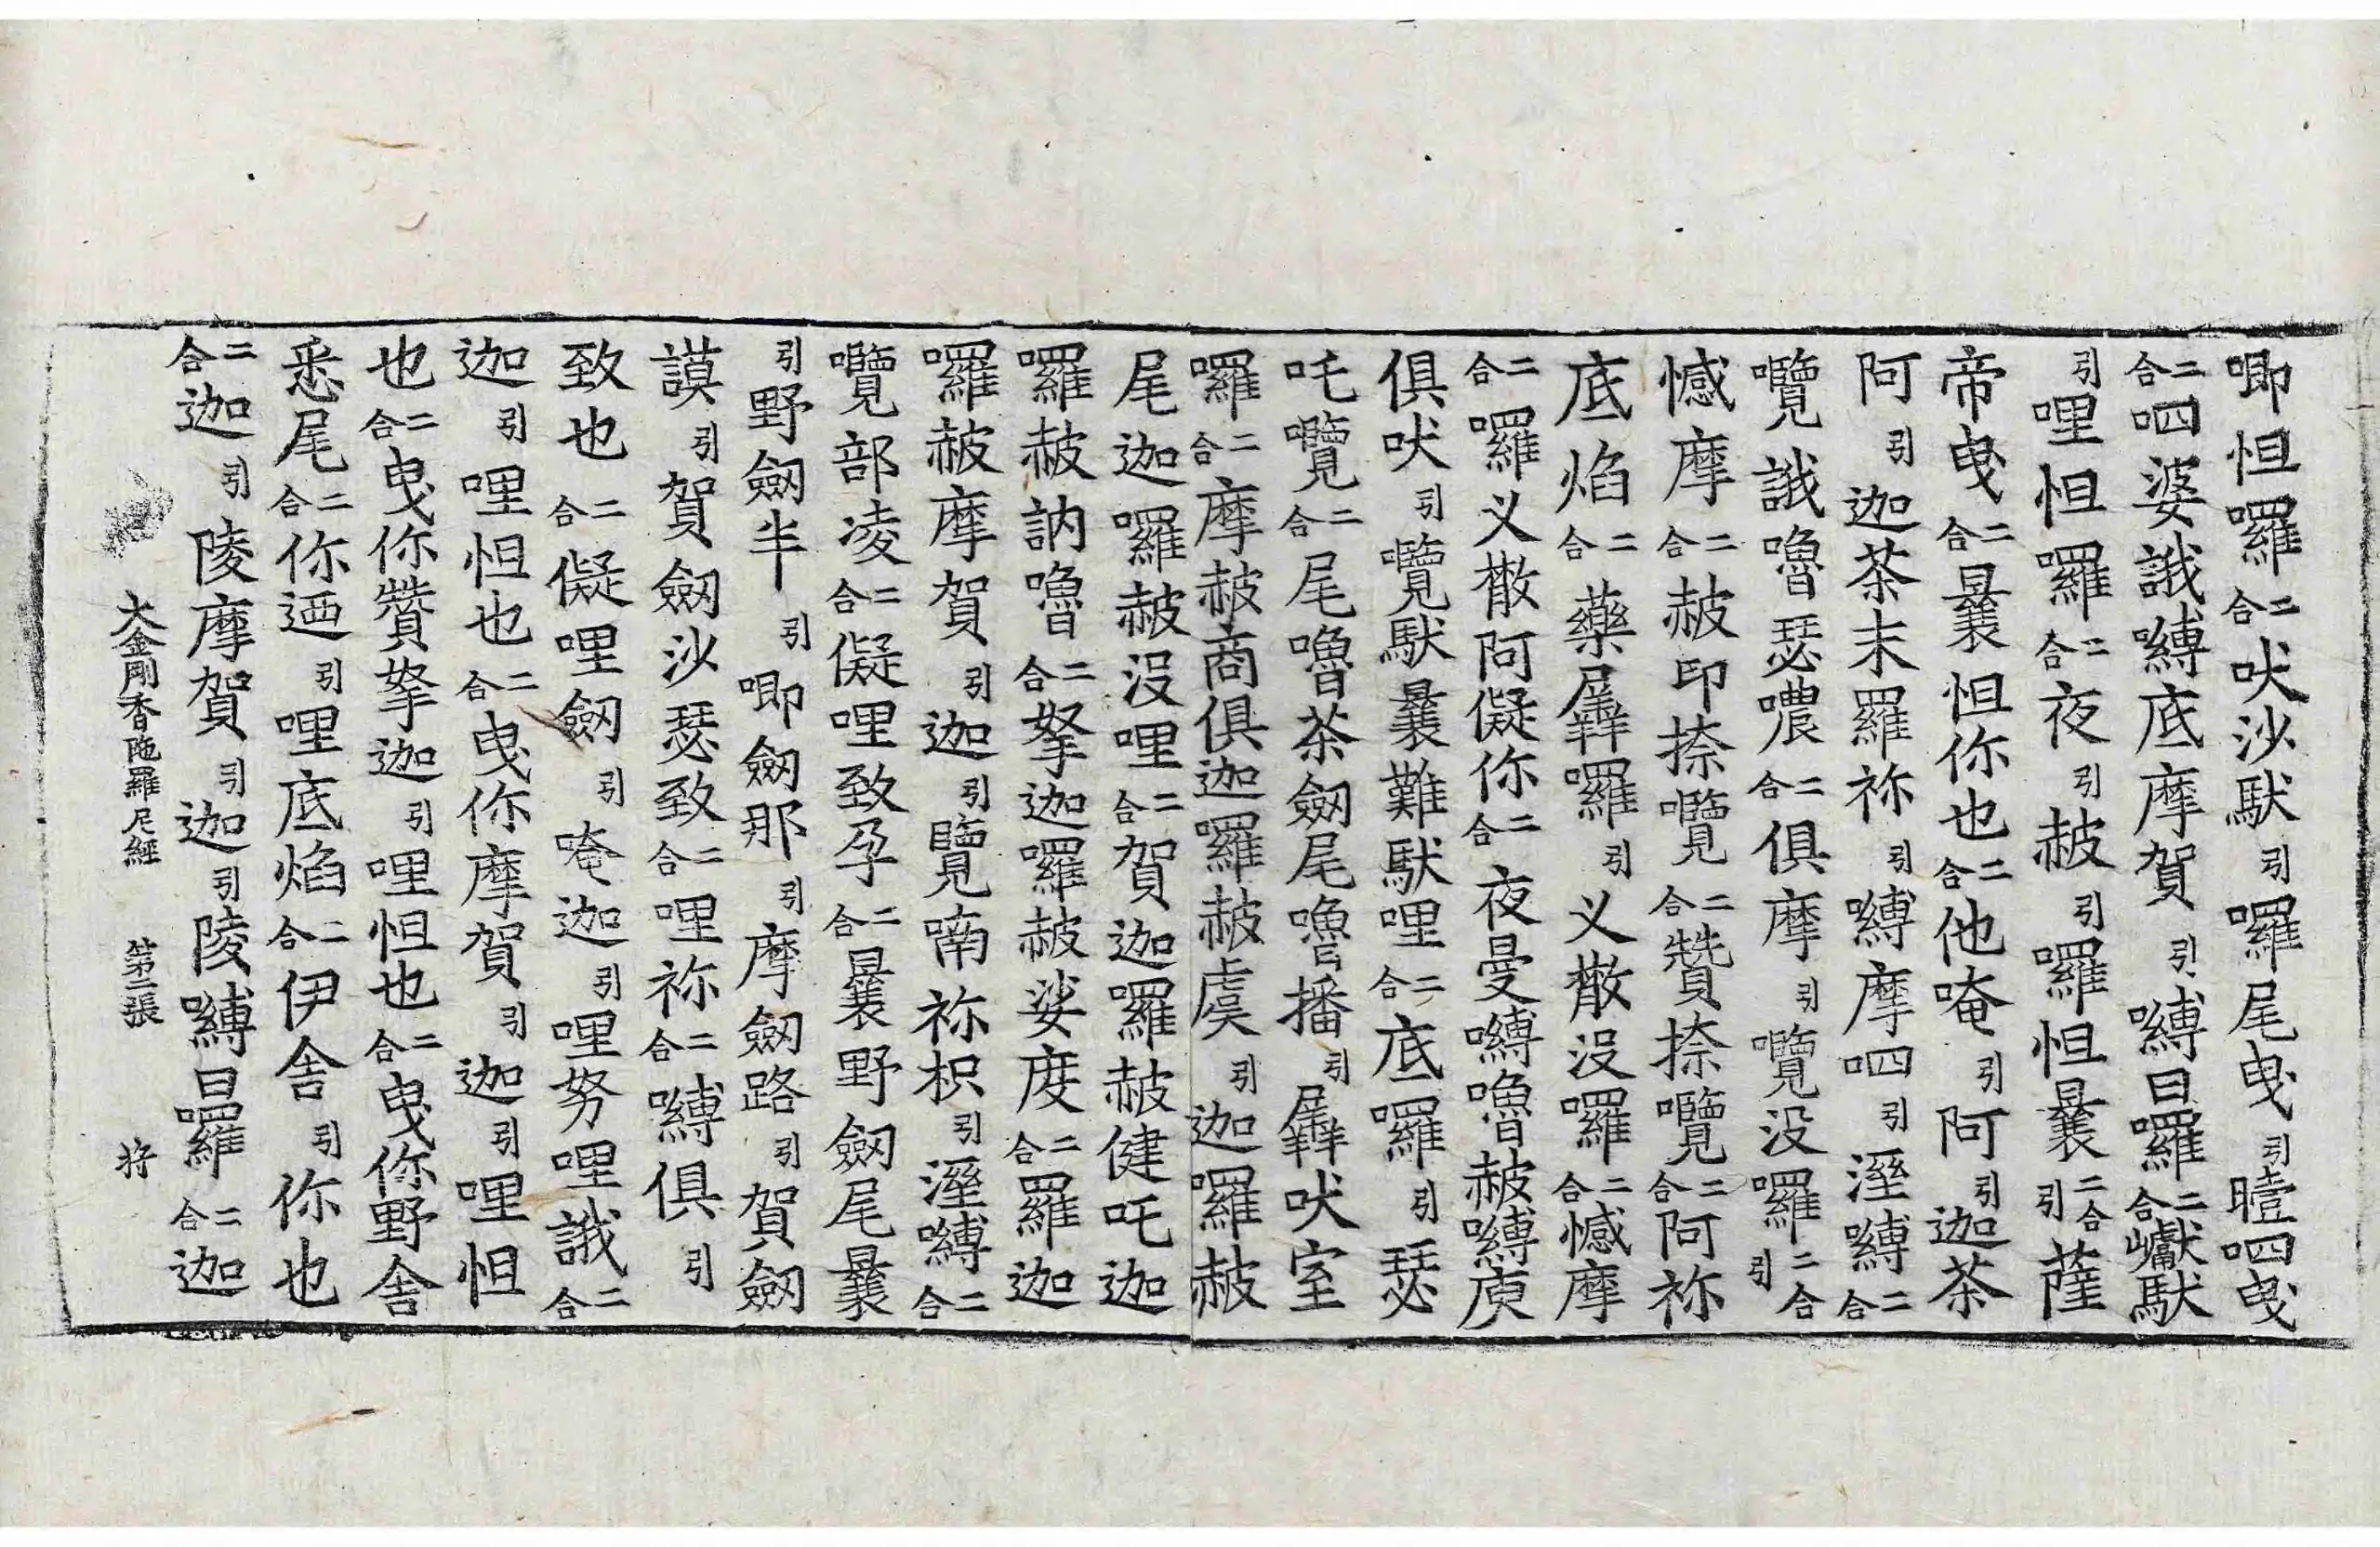 唧怛囉二合吠沙馱引囉尾曳引曀呬曳
二合呬婆誐嚩底摩賀引嚩日囉二合巘馱
引哩怛囉二合夜引赧引囉怛曩二合引薩
帝曳二合曩怛你也二合他唵引阿引迦茶
阿引迦茶末羅祢引嚩摩呬引溼嚩二合
囕誐嚕瑟噥二合俱摩引囕没囉二合引
憾摩二合赧印捺囕二合贊捺囕二合阿祢
底焰二合藥羼囉引义散没囉二合憾摩
二合囉义散阿儗你二合夜曼嚩嚕赧嚩庾
俱吠引囕馱曩難馱哩二合底囉引瑟
吒囕二合尾嚕茶劒尾嚕播引羼吠室
囉二合摩赧商俱迦囉赧虞引迦囉赧
尾迦囉赧没哩二合賀迦囉赧健吒迦
囉赧訥嚕二合拏迦囉赧娑度二合羅迦
囉赧摩賀引迦引覽喃祢枳引溼嚩二合
囕部凌二合儗哩致孕二合曩野劒尾曩
引野劒半引唧劒那引摩劒路引賀劒
謨引賀劒沙瑟致二合哩祢二合嚩俱引
致也二合儗哩劒引唵迦引哩努哩誐二合
迦引哩怛也二合曳你摩賀引迦引哩怛
也二合曳你贊拏迦引哩怛也二合曳你野舍
悉尾二合你迺引哩底焰二合伊舍引你也
二合迦引陵摩賀引迦引陵嚩日囉二合迦
大金剛香陁羅尼經 第三張 将